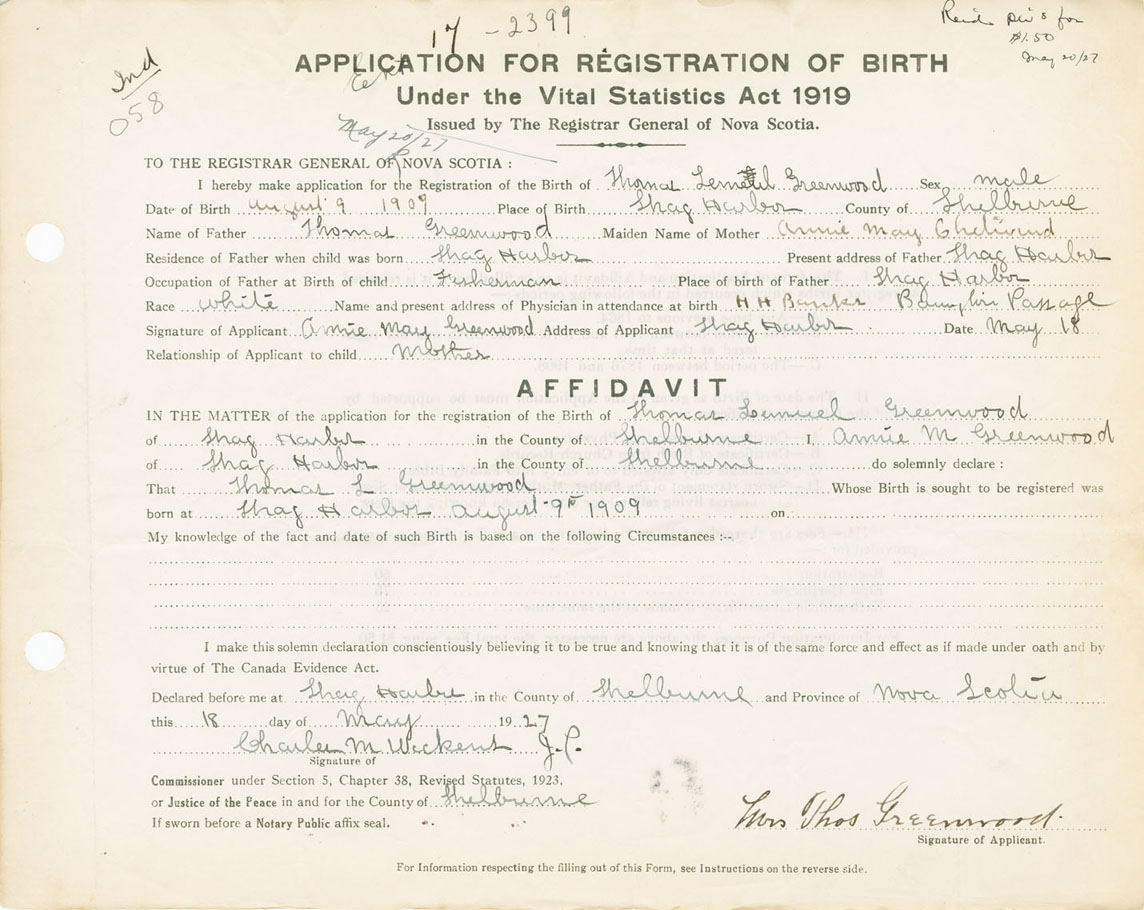 17 - 2399
$1.50
May 20/27
Ind
058
APPLICATION FOR REGISTRATION OF BIRTH
Under the Vital Statistics Act 1919
Issued by The Registrar General of Nova Scotia.
May 20/27
TO THE REGISTRAR GENERAL OF NOVA SCOTIA :
I hereby make application for the Registration of the Birth of Thomas Lemuel Greenwood Sex male
Date of Birth August 9 1909 Place of Birth Shag Harbor County of Shelburne
Name of Father Thomas Greenwood Maiden Name of Mother Annie May
Residence of Father when child was born Shag Harbor Present address of Father Shag Harbor
Occupation of Father at Birth of child Fisherman Place of birth of Father Shag Harbor
Race white Name and present address of Physician in attendance at birth H H Banks Passage
Signature of Applicant Annie May Greenwood Address of Applicant Shag Harbor Date May 18
Relationship of Applicant to child Mother
AFFIDAVIT
IN THE MATTER of the application for the registration of the Birth of Thomas Lemuel Greenwood
of Shag Harbor in the County of Shelburne I, Annie M Greenwood
of Shag Harbor in the County of Shelburne do solemnly declare :
That Thomas L Greenwood Whose Birth is sought to be registered was
born at Shag Harbor August 9th 1909 on
My knowledge of the fact and date of such Birth is based on the following Circumstances :--
I make this solemn declaration conscientiously believing it to be true and knowing that it is of the same force and effect as if made under oath and by
virtue of The Canada Evidence Act.
Declared before me at Shag Harbor in the County of Shelburne and Province of Nova Scotia
this 18 day of May 1927
Charles M J.P.
Signature of
Commissioner under Section 5, Chapter 38, Revised Statutes, 1923,
or Justice of the Peace in and for the County of Shelburne
If sworn before a Notary Public affix seal.
Mrs Thos Greenwood
Signature of Applicant.
For Information respecting the filling out of this Form, see Instructions on the reverse side.